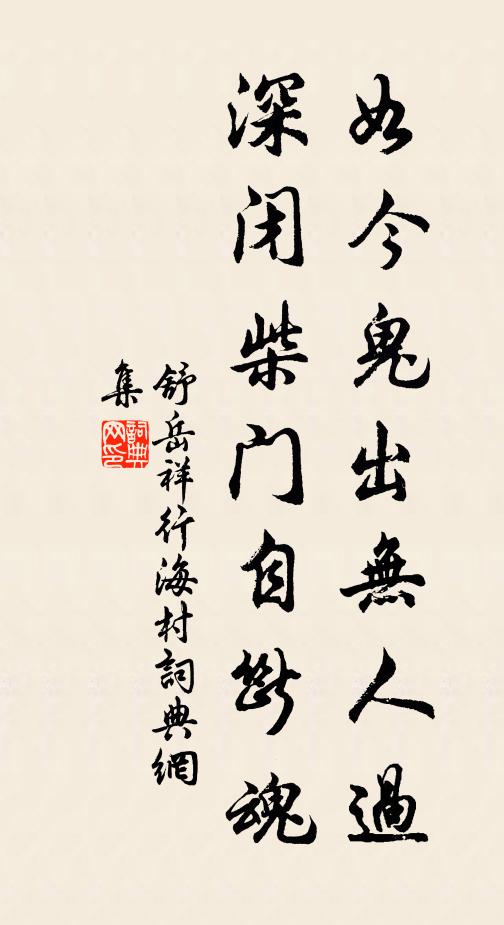 如今鬼出無人過
深闭柴门自斷魂
舒岳祥行海村詞典網
集
詞典网印